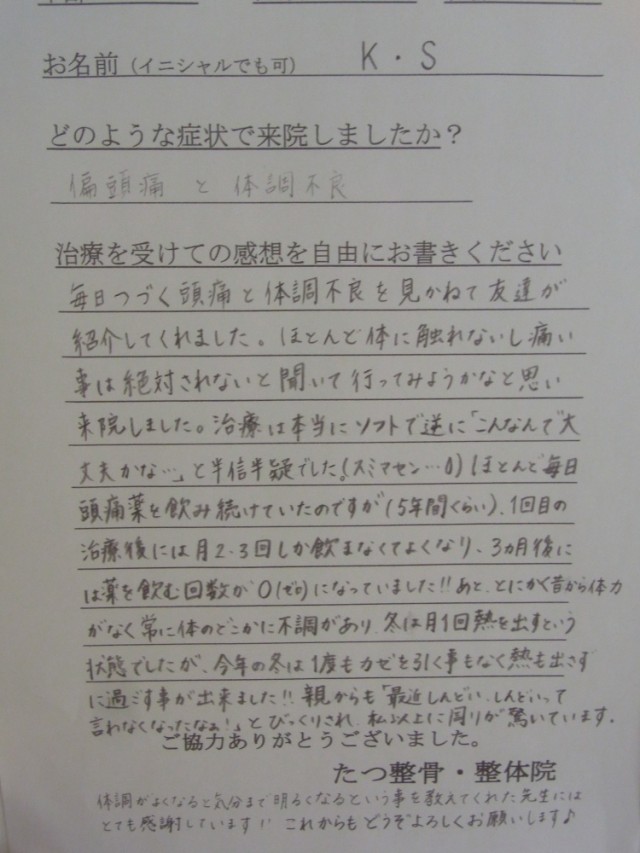 お名前（イニシャルでも可） K・S
どのような症状で来院しましたか？
偏頭痛 と 体調不良
治療を受けての感想を自由にお書きください
毎日つづく頭痛と体調不良を見かねて友達が
紹介してくれました。ほとんど体に触れないし痛い
事は絶対されないと聞いて行ってみようかなと思い
来院しました。治療は本当にソフトで逆に「こんなんで大
丈夫かな…」と半信半疑でした。(スミマセン…0) ほとんど毎日
頭痛薬を飲み続けていたのですが(5年間くらい)、1回目の
治療後には月2、3回しか飲まなくてよくなり、3ヵ月後に
は薬を飲む回数が0(ゼロ)になっていました!!あと、とにかく昔から体力
がなく常に体のどこかに不調があり、冬は月1回熱を出すという
状態でしたが、今年の冬は1度もカゼを引く事もなく熱も出さず
に過ごす事が出来ました!!親からも「最近しんどい、しんどいって
言わなくなったなぁ!」とびっくりされ、私以上に周りが驚いています。
ご協力ありがとうございました。
たつ整骨・整体院
体調がよくなると気分まで明るくなるという事を教えてくれた先生には
とても感謝しています!! これからもどうぞよろしくお願いします♪